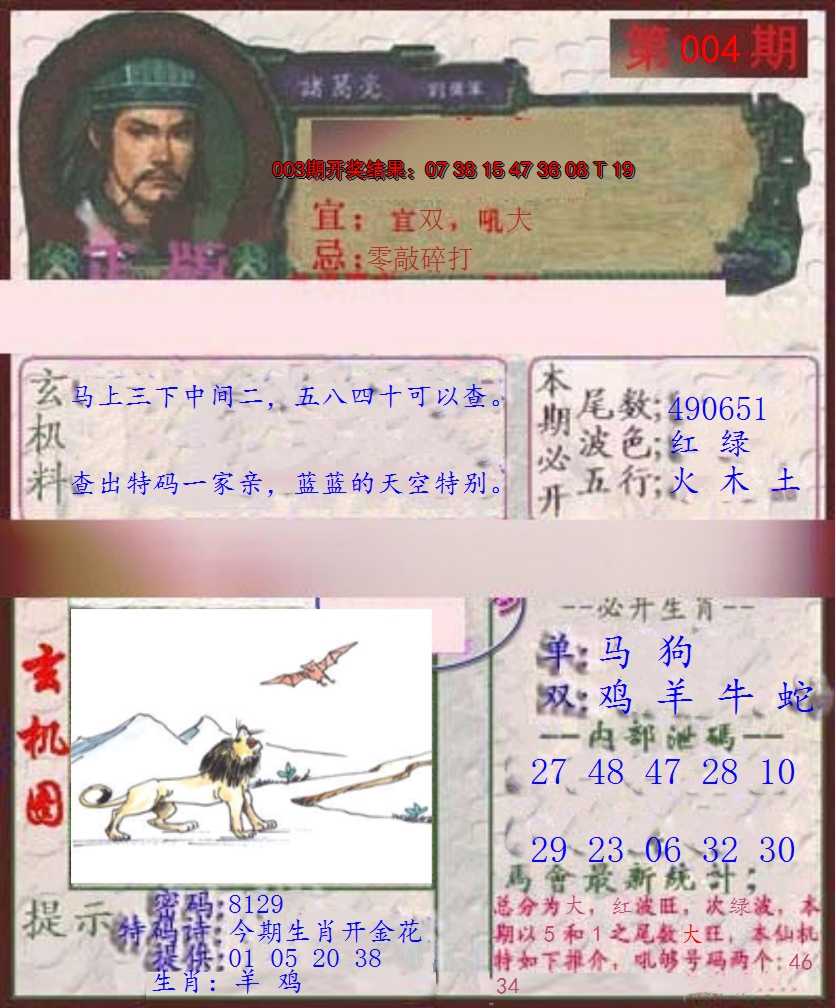 第 004 期
諸葛亮
003期开奖结果：07 38 15 47 36 08 T 19
宜；宜双，吼大
忌；零敲碎打
正版
玄机料
马上三下中间二，五八四十可以查。
查出特码一家亲，蓝蓝的天空特别。
本期必开
尾数;490651
波色;红 绿
五行;火 木 土
玄机图
--必开生肖--
单:马 狗
双:鸡 羊 牛 蛇
--内部泄碼--
27 48 47 28 10
29 23 06 32 30
馬會最新統計；
总分为大，红波旺，次绿波，本
期以5和1之尾数大旺，本仙机
特如下推介，吼够号码两个:46
34
提示
密码:8129
特码诗:今期生肖开金花
提供:01 05 20 38
生肖：羊 鸡